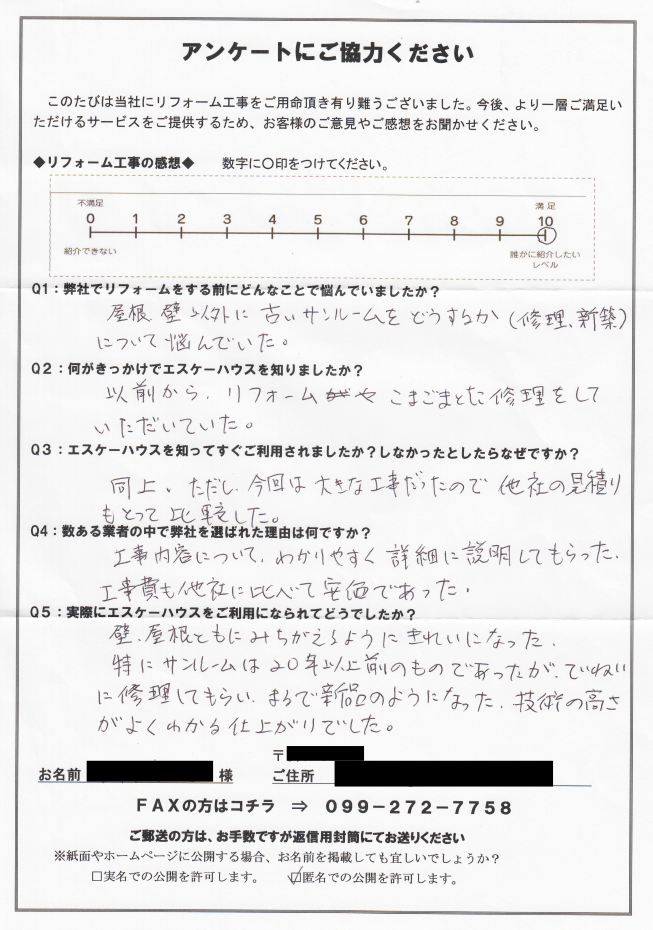 アンケートにご協力ください
このたびは当社にリフォーム工事をご用命頂き有り難うございました。今後、より一層ご満足い
ただけるサービスをご提供するため、お客様のご意見やご感想をお聞かせください。
◆リフォーム工事の感想◆ 数字に〇印をつけてください。
不満足 満足
0 1 2 3 4 5 6 7 8 9 10
紹介できない 誰かに紹介したい
レベル
Q1：弊社でリフォームをする前にどんなことで悩んでいましたか？
屋根 壁 以外に 古いサンルームを どうするか (修理、新築)
について 悩んでいた。
Q2：何がきっかけでエスケーハウスを知りましたか？
以前から、リフォームや こまごまとした修理をして
いただいていた。
Q3：エスケーハウスを知ってすぐご利用されましたか？しなかったとしたらなぜですか？
同上、ただし、今回は 大きな工事だったので 他社の見積り
もとって 比較した。
Q4：数ある業者の中で弊社を選ばれた理由は何ですか？
工事内容について、わかりやすく 詳細に説明してもらった、
工事費も他社に比べて 安価であった。
Q5：実際にエスケーハウスをご利用になられてどうでしたか？
壁、屋根ともに みちがえるように きれいになった、
特に サンルームは 20年以上前のものであったが、ていねい
に修理してもらい、まるで新品のようになった、技術の高さ
がよくわかる仕上がりでした。
〒
お名前 様 ご住所
ＦＡＸの方はコチラ ⇒ ０９９－２７２－７７５８
ご郵送の方は、お手数ですが返信用封筒にてお送りください
※紙面やホームページに公開する場合、お名前を掲載しても宜しいでしょうか？
□実名での公開を許可します。 ☑匿名での公開を許可します。